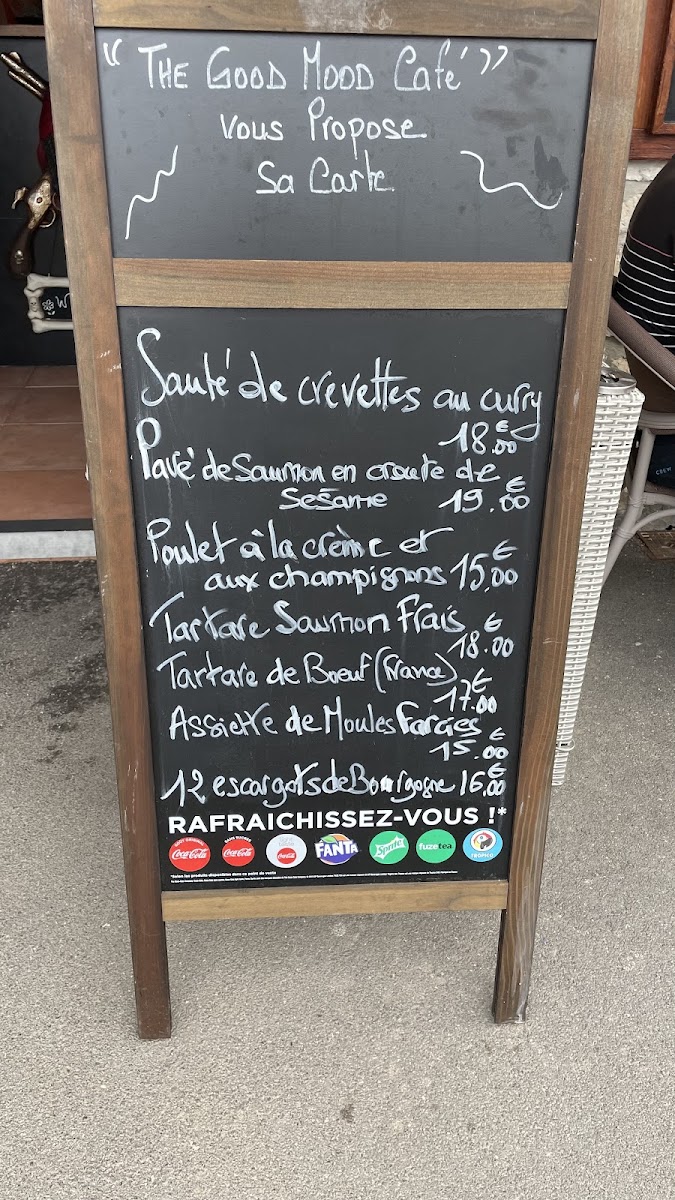 "THE GOOD MOOD Café"
Vous Propose
Sa Carte
Sauté de crevettes au curry
18.00€
Pavé de Saumon en croute de
Sésame 19.00€
Poulet à la crème et
aux champignons 15,00€
Tartare Saumon Frais
18.00€
Tartare de Boeuf (France)
17.00€
Assiette de Moules Farcies
15.00€
12 escargots de Bourgogne 16.00€
RAFRAICHISSEZ-VOUS !*
Coca-Cola Coca-Cola Coca-Cola FANTA Sprite fuzetea TROPICO
*Selon les produits disponibles dans ce point de vente